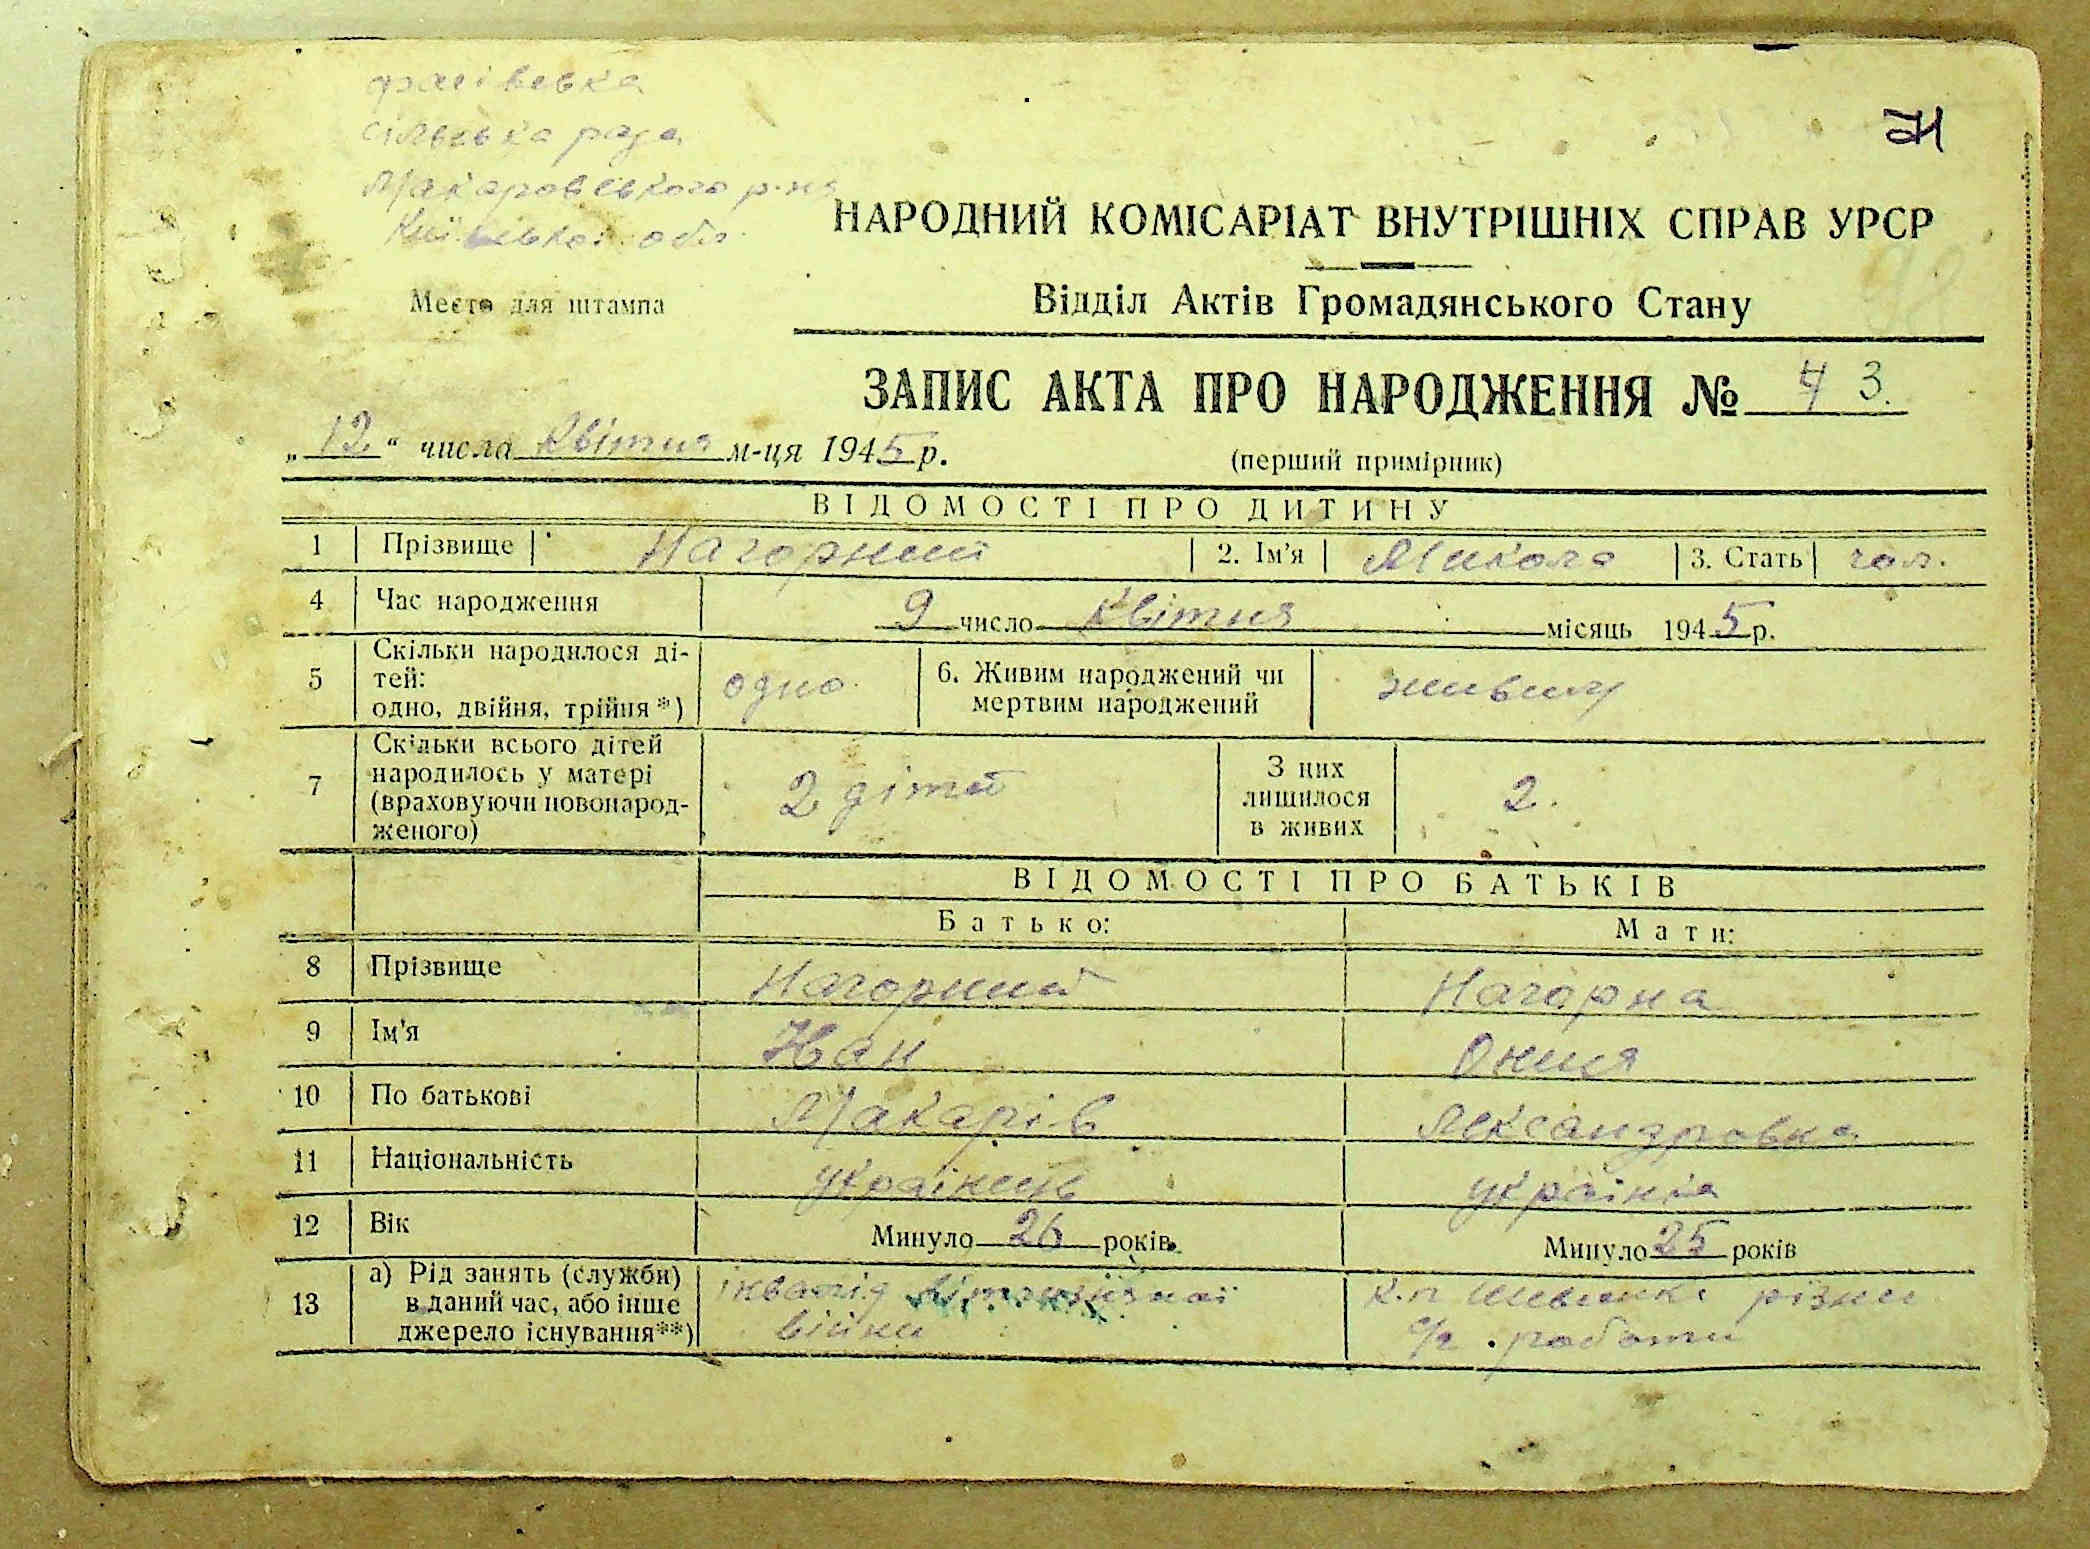 сільська рада
Макаровського р-на
Київської обл.
Место для штампа
НАРОДНИЙ КОМІСАРІАТ ВНУТРІШНІХ СПРАВ УРСР
Відділ Актів Громадянського Стану
ЗАПИС АКТА ПРО НАРОДЖЕННЯ № 43.
„12“ числа Квітня м-ця 1945 р.
(перший примірник)
ВІДОМОСТІ ПРО ДИТИНУ
1 Прізвище Нагорний 2. Ім'я Микола 3. Стать чол.
4 Час народження 9 число Квітня місяць 1945 р.
5 Скільки народилося ді-
тей:
одно, двійня, трійня*) одно. 6. Живим народжений чи
мертвим народжений живим
7 Скільки всього дітей
народилось у матері
(враховуючи новонарод-
женого) 2 дітей З цих
лишилося
в живих 2.
ВІДОМОСТІ ПРО БАТЬКІВ
Батько: Мати:
8 Прізвище Нагорний Нагорна
9 Ім'я Іван
10 По батькові Макарів Лександровна
11 Національність українць українка
12 Вік Минуло 26 років. Минуло 25 років
13 а) Рід занять (служби)
в даний час, або інше
джерело існування**) інвалід вітчизняної
війни різни
с/г. роботи